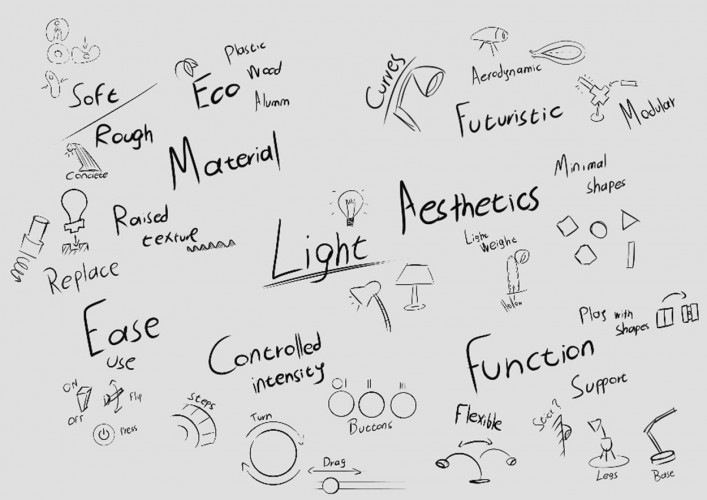 Soft
Rough
Concrete
Eco
Plastic
Wood
Alumn
Material
Raised
texture
Replace
Curves
Aerodynamic
Futuristic
Modular
Aesthetics
Minimal
shapes
Light
weight
Hollow
Light
Ease
Use
ON
OFF
Flip
Press
Controlled
intensity
Steps
Turn
Drag
I
II
III
Buttons
Function
Play with
shapes
Support
Flexible
Stick?
Legs
Base